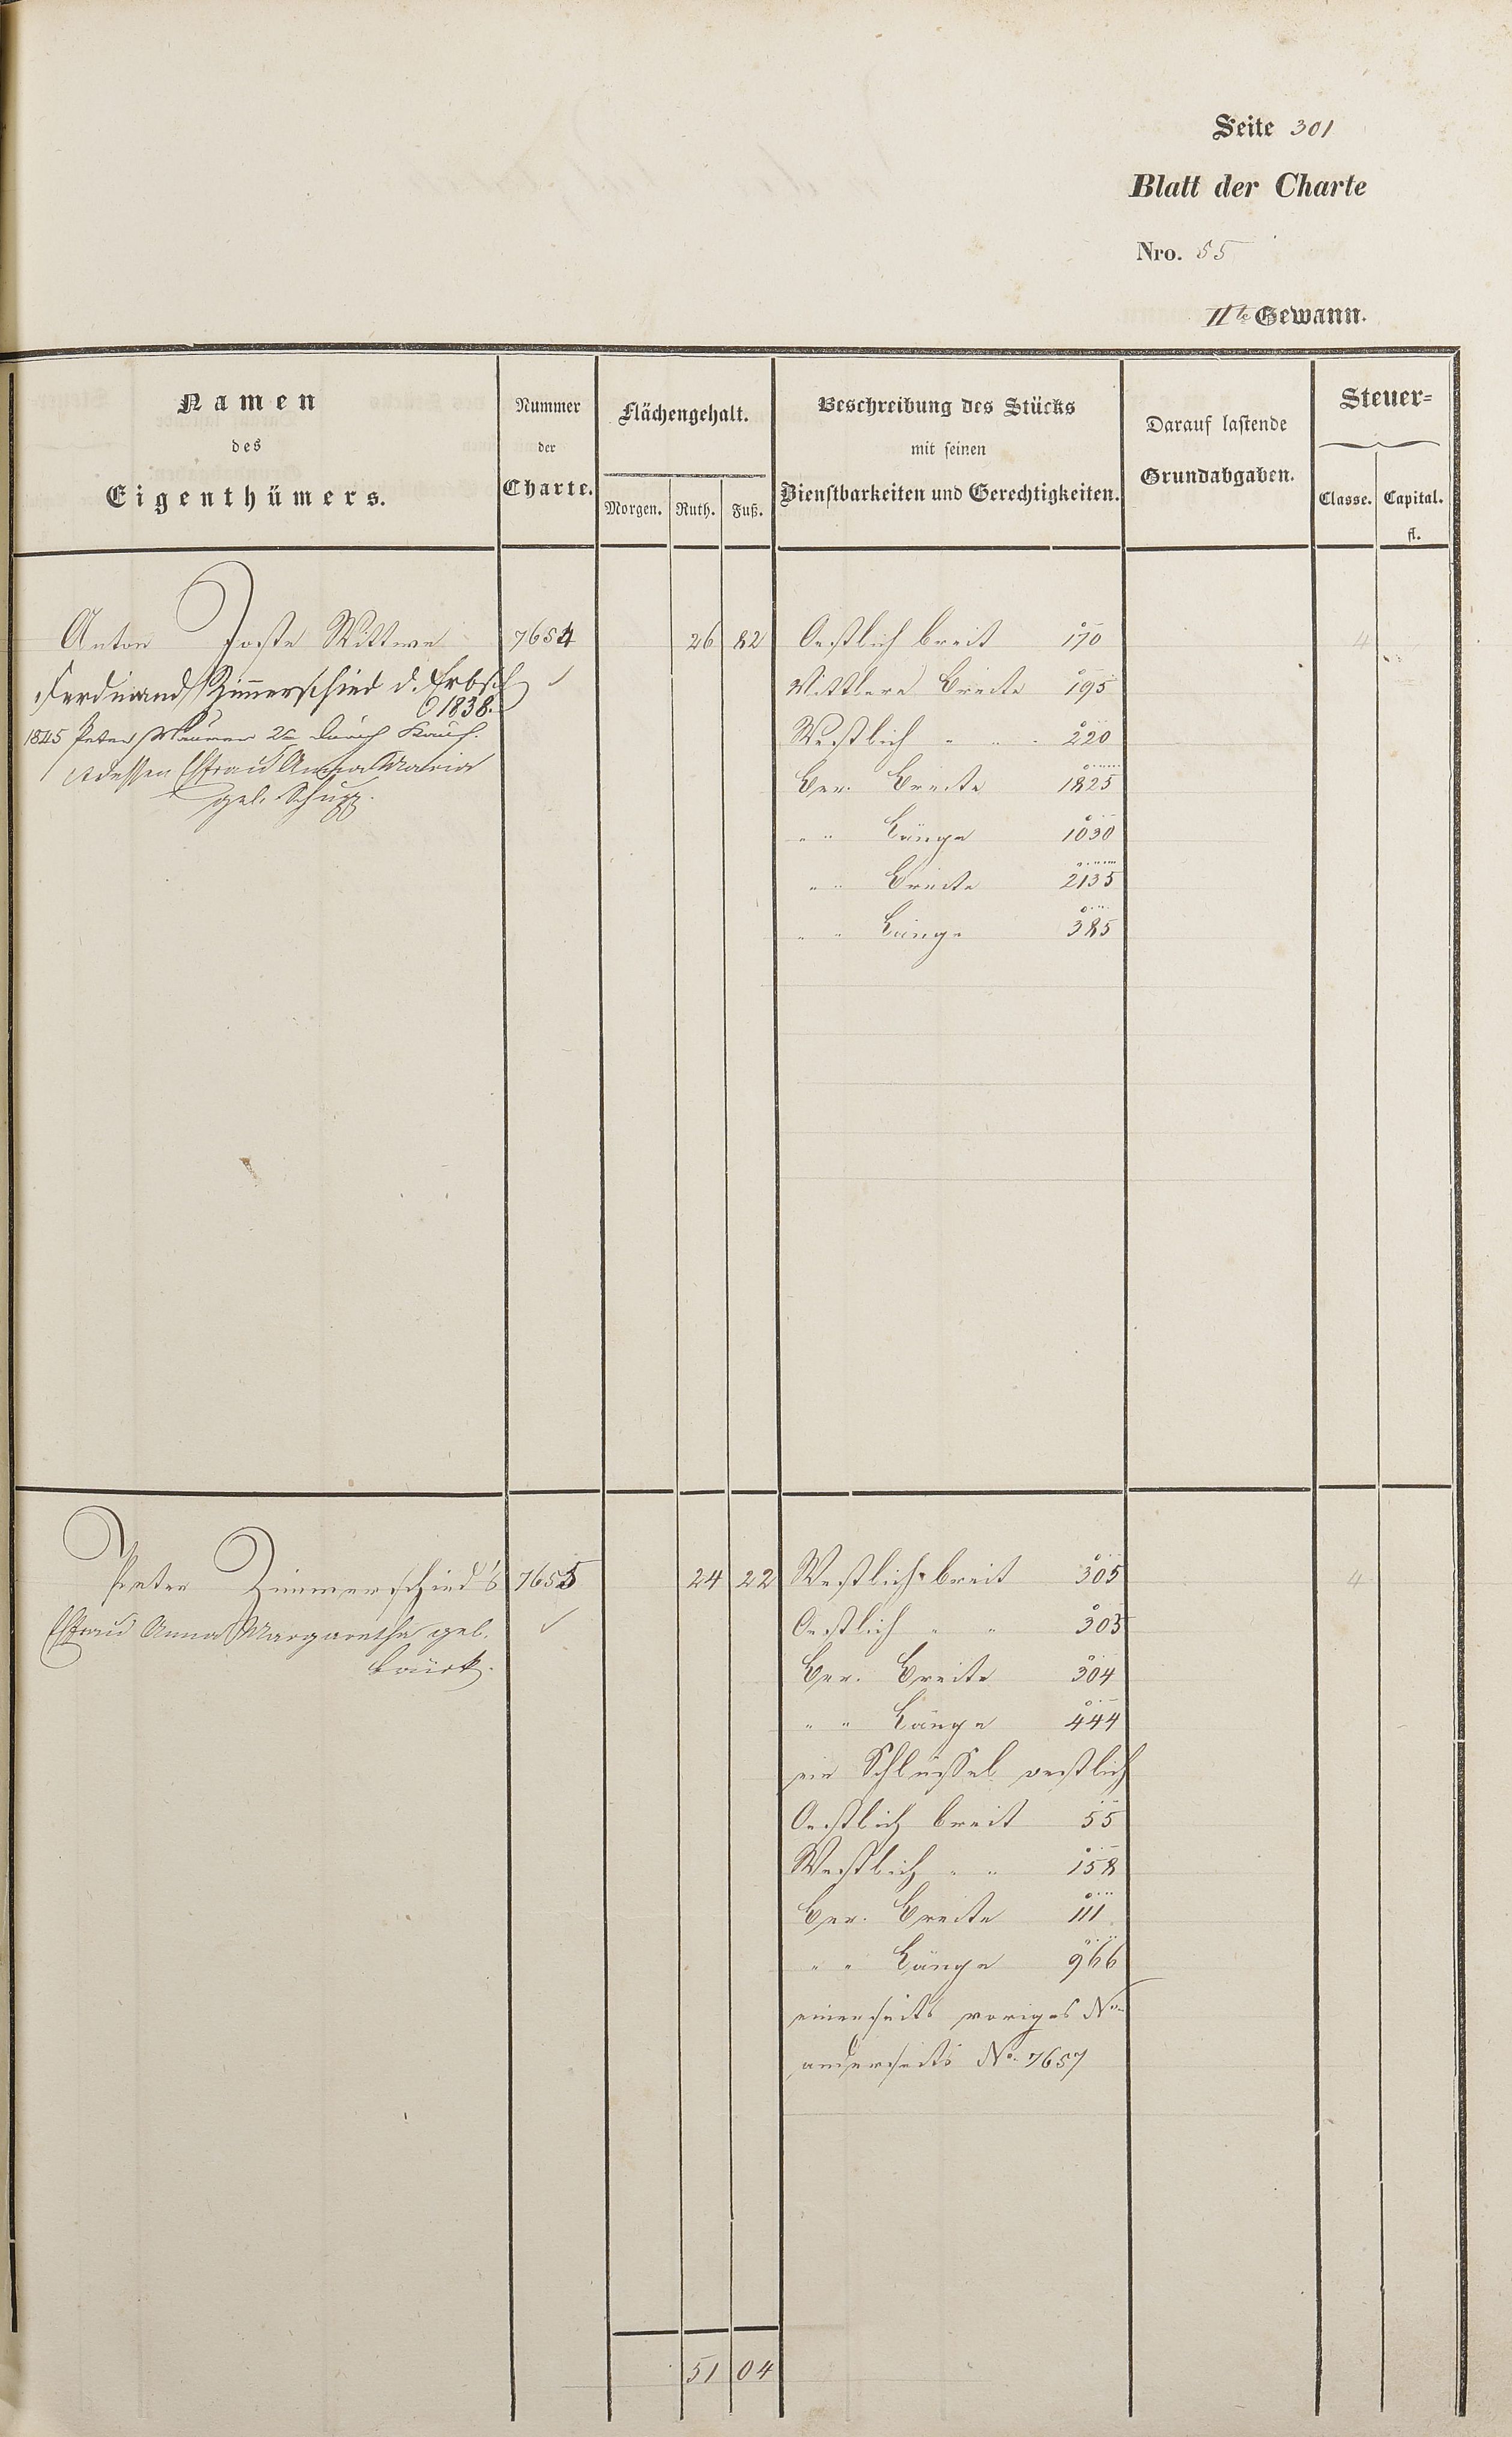 Seite 301
Blatt der Charte
Nro. 55
IIte Gewann.
Namen
des
Eigenthümers.
Nummer
der
Charte.
Flächengehalt.
Morgen. Ruth. Fuß.
Beschreibung des Stücks
mit seinen
Dienstbarkeiten und Gerechtigkeiten.
Darauf lastende
Grundabgaben.
Steuer=
Classe. Capital.
fl.
Anton Joste Wittwe 7654 26 82 Oestlich breit 170 4
Ferdinand Zimmerschied d. Erbsch Mittlere Breite 195
1838.
1845 Peter Maurer 2r durch Kauf. Westlich " " 220
dessen Ehfrau Anna Maria Ber. Breite 1825
geb. Schupp.
" " Länge 1030
" " Breite 2135
" " Länge 385
Peter Zimmerschied's 7655 24 22 Westlich breit 305 4
Ehfrau Anna Margaretha geb. Oestlich " " 303
Ber. Breite 304
" " Länge 444
ein Schlüssel westlich
Oestlich breit 55
Westlich " " 158
Ber. Breite 111
" " Länge 966
einerseits voriges No
anderseits No. 7657
51 04